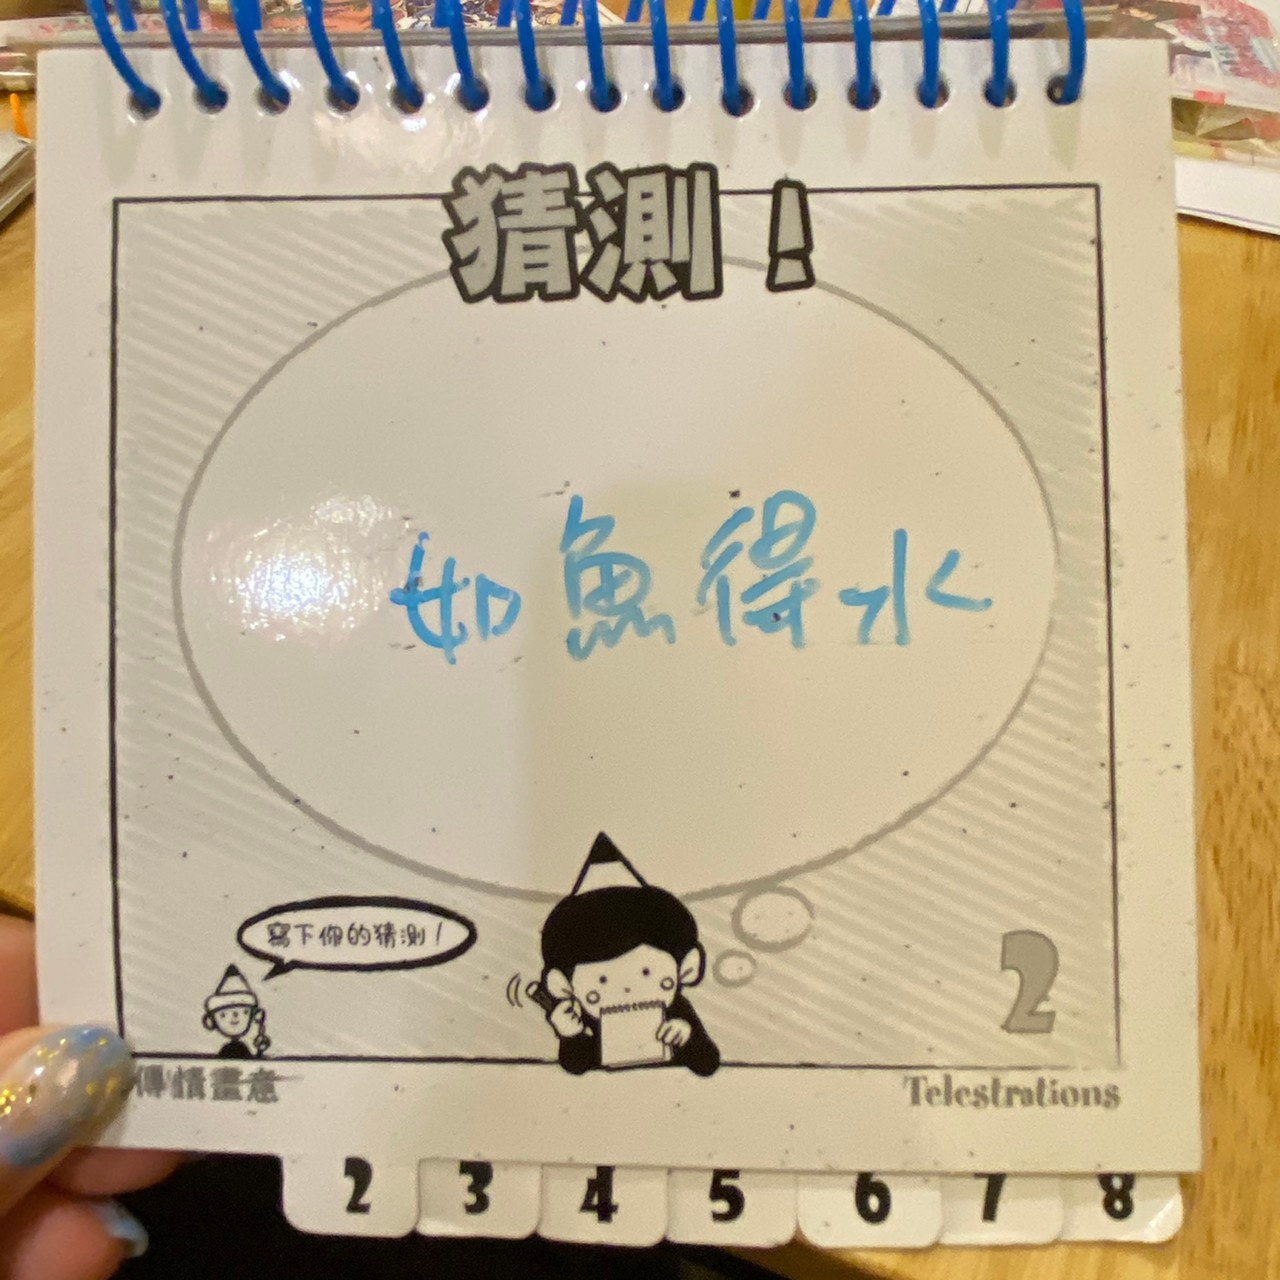 猜測！
如魚得水
寫下你的猜測！
2
傳情畫意
Telestrations
2 3 4 5 6 7 8